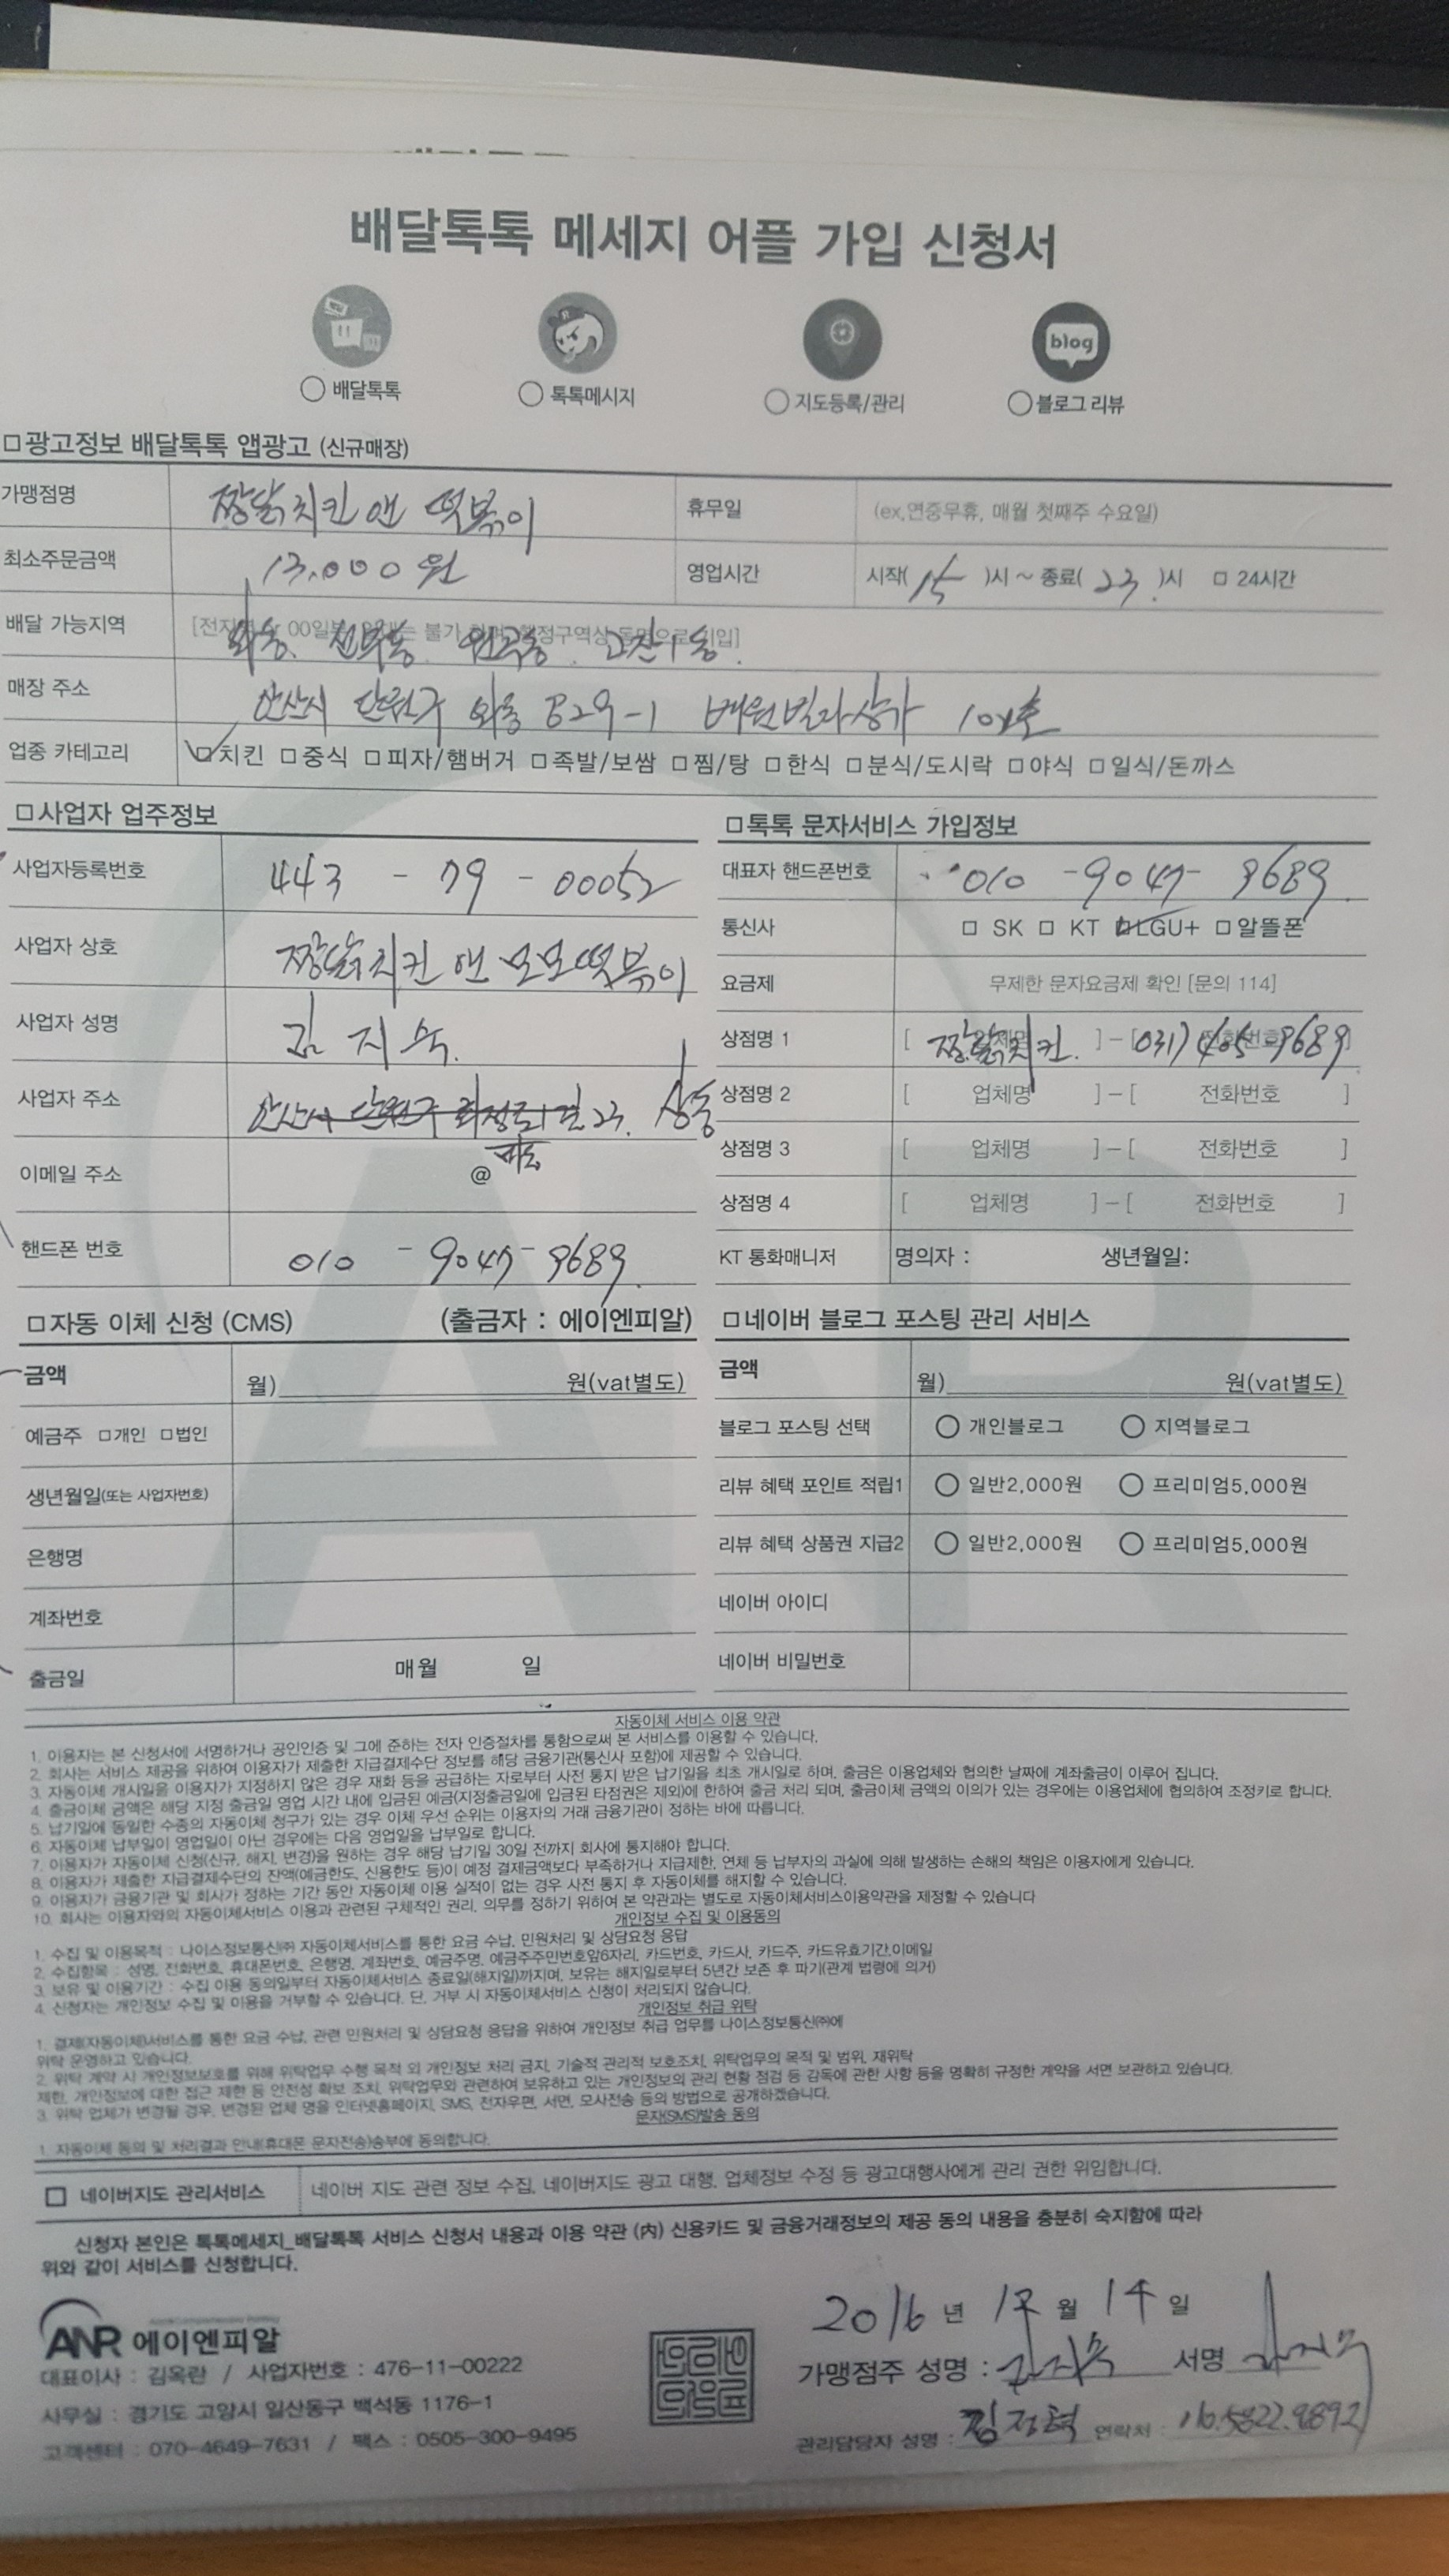 배달톡톡 메세지 어플 가입 신청서
blog
○ 배달톡톡 ○ 톡톡메시지 ○ 지도등록/관리 ○ 블로그 리뷰
□ 광고정보 배달톡톡 앱광고 (신규매장)
가맹점명 짱닭치킨 앤 떡볶이 휴무일 (ex,연중무휴, 매월 첫째주 수요일)
최소주문금액 13,000원 영업시간 시작( 15 )시 ~ 종료( 23 )시 □ 24시간
배달 가능지역 와동. 선부동. 원곡동. 고잔1동.
매장 주소 안산시 단원구 와동 829-1 빌라상가
업종 카테고리 ☑치킨 □중식 □피자/햄버거 □족발/보쌈 □찜/탕 □한식 □분식/도시락 □야식 □일식/돈까스
□ 사업자 업주정보
사업자등록번호 443 - 79 - 00052
사업자 상호 짱닭치킨 앤 모모떡볶이
사업자 성명 김지숙
사업자 주소 안산시 단원구 23.
이메일 주소 @
핸드폰 번호 010 - 9047 - 9689
□ 톡톡 문자서비스 가입정보
대표자 핸드폰번호 010 - 9047 - 9689
통신사 □ SK □ KT ☑LGU+ □알뜰폰
요금제 무제한 문자요금제 확인 [문의 114]
상점명 1 [ 짱닭치킨. ] - [ 031) 405 9689 ]
상점명 2 [ 업체명 ] - [ 전화번호 ]
상점명 3 [ 업체명 ] - [ 전화번호 ]
상점명 4 [ 업체명 ] - [ 전화번호 ]
KT 통화매니저 명의자 : 생년월일:
□ 자동 이체 신청 (CMS) (출금자 : 에이엔피알)
금액 월) 원(vat별도)
예금주 □개인 □법인
생년월일(또는 사업자번호)
은행명
계좌번호
출금일 매월 일
□ 네이버 블로그 포스팅 관리 서비스
금액 월) 원(vat별도)
블로그 포스팅 선택 ○ 개인블로그 ○ 지역블로그
리뷰 혜택 포인트 적립1 ○ 일반2,000원 ○ 프리미엄5,000원
리뷰 혜택 상품권 지급2 ○ 일반2,000원 ○ 프리미엄5,000원
네이버 아이디
네이버 비밀번호
자동이체 서비스 이용 약관
1. 이용자는 본 신청서에 서명하거나 공인인증 및 그에 준하는 전자 인증절차를 통함으로써 본 서비스를 이용할 수 있습니다.
2. 회사는 서비스 제공을 위하여 이용자가 제출한 지급결제수단 정보를 해당 금융기관(통신사 포함)에 제공할 수 있습니다.
3. 자동이체 개시일을 이용자가 지정하지 않은 경우 재화 등을 공급하는 자로부터 사전 통지 받은 납기일을 최초 개시일로 하며, 출금은 이용업체와 협의한 날짜에 계좌출금이 이루어 집니다.
4. 출금이체 금액은 해당 지정 출금일 영업 시간 내에 입금된 예금(지정출금일에 입금된 타점권은 제외)에 한하여 출금 처리 되며, 출금이체 금액의 이의가 있는 경우에는 이용업체에 협의하여 조정키로 합니다.
5. 납기일에 동일한 수종의 자동이체 청구가 있는 경우 이체 우선 순위는 이용자의 거래 금융기관이 정하는 바에 따릅니다.
6. 자동이체 납부일이 영업일이 아닌 경우에는 다음 영업일을 납부일로 합니다.
7. 이용자가 자동이체 신청(신규, 해지, 변경)을 원하는 경우 해당 납기일 30일 전까지 회사에 통지해야 합니다.
8. 이용자가 제출한 지급결제수단의 잔액(예금한도, 신용한도 등)이 예정 결제금액보다 부족하거나 지급제한, 연체 등 납부자의 과실에 의해 발생하는 손해의 책임은 이용자에게 있습니다.
9. 이용자가 금융기관 및 회사가 정하는 기간 동안 자동이체 이용 실적이 없는 경우 사전 통지 후 자동이체를 해지할 수 있습니다.
10. 회사는 이용자와의 자동이체서비스 이용과 관련된 구체적인 권리, 의무를 정하기 위하여 본 약관과는 별도로 자동이체서비스이용약관을 제정할 수 있습니다
개인정보 수집 및 이용동의
1. 수집 및 이용목적 : 나이스정보통신㈜ 자동이체서비스를 통한 요금 수납, 민원처리 및 상담요청 응답
2. 수집항목 : 성명, 전화번호, 휴대폰번호, 은행명, 계좌번호, 예금주명, 예금주주민번호앞6자리, 카드번호, 카드사, 카드주, 카드유효기간,이메일
3. 보유 및 이용기간 : 수집 이용 동의일부터 자동이체서비스 종료일(해지일)까지며, 보유는 해지일로부터 5년간 보존 후 파기(관계 법령에 의거)
4. 신청자는 개인정보 수집 및 이용을 거부할 수 있습니다. 단, 거부 시 자동이체서비스 신청이 처리되지 않습니다.
개인정보 취급 위탁
1. 결제(자동이체)서비스를 통한 요금 수납, 관련 민원처리 및 상담요청 응답을 위하여 개인정보 취급 업무를 나이스정보통신㈜에
위탁 운영하고 있습니다.
2. 위탁 계약 시 개인정보보호를 위해 위탁업무 수행 목적 외 개인정보 처리 금지, 기술적 관리적 보호조치, 위탁업무의 목적 및 범위, 재위탁
제한, 개인정보에 대한 접근 제한 등 안전성 확보 조치, 위탁업무와 관련하여 보유하고 있는 개인정보의 관리 현황 점검 등 감독에 관한 사항 등을 명확히 규정한 계약을 서면 보관하고 있습니다.
3. 위탁 업체가 변경될 경우, 변경된 업체 명을 인터넷홈페이지, SMS, 전자우편, 서면, 모사전송 등의 방법으로 공개하겠습니다.
문자(SMS)발송 동의
1. 자동이체 동의 및 처리결과 안내(휴대폰 문자전송)송부에 동의합니다.
□ 네이버지도 관리서비스 네이버 지도 관련 정보 수집, 네이버지도 광고 대행, 업체정보 수정 등 광고대행사에게 관리 권한 위임합니다.
신청자 본인은 톡톡메세지_배달톡톡 서비스 신청서 내용과 이용 약관 (內) 신용카드 및 금융거래정보의 제공 동의 내용을 충분히 숙지함에 따라
위와 같이 서비스를 신청합니다.
2016 년 12 월 14 일
ANR 에이엔피알
대표이사 : 김옥란 / 사업자번호 : 476-11-00222
사무실 : 경기도 고양시 일산동구 백석동 1176-1
고객센터 : 070-4649-7631 / 팩스 : 0505-300-9495
가맹점주 성명 : 김지숙 서명 김지숙
관리담당자 성명 : 김정혁 연락처 :